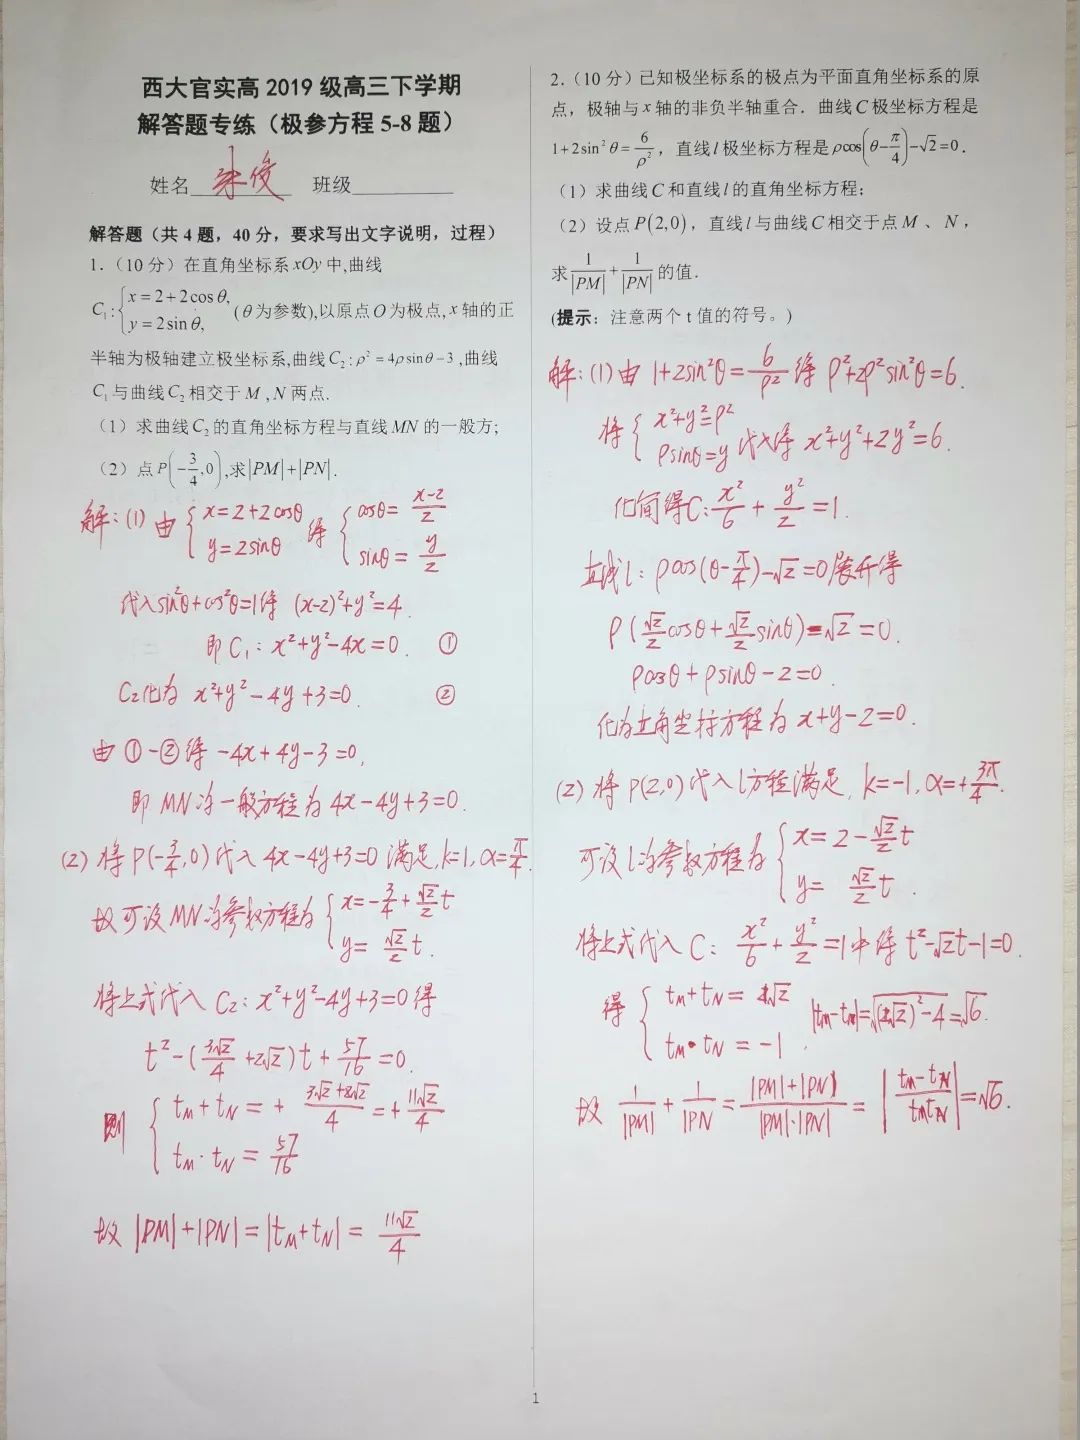 西大官实高 2019 级高三下学期
解答题专练（极参方程 5-8 题）
姓名 朱俊 班级
解答题（共 4 题，40 分，要求写出文字说明，过程）
1.（10 分）在直角坐标系 xOy 中,曲线
C₁:{x=2+2cosθ, y=2sinθ, (θ为参数),以原点O为极点,x轴的正
半轴为极轴建立极坐标系,曲线C₂:ρ²=4ρsinθ−3,曲线
C₁与曲线C₂相交于M,N两点.
（1）求曲线C₂的直角坐标方程与直线MN的一般方;
（2）点P(−3/4,0),求|PM|+|PN|.
解:(1) 由{x=2+2cosθ y=2sinθ 得{cosθ=(x-2)/2 sinθ=y/2
代入sin²θ+cos²θ=1得 (x-2)²+y²=4.
即C₁: x²+y²-4x=0. ①
C₂化为 x²+y²-4y+3=0. ②
由①-②得 -4x+4y-3=0,
即MN的一般方程为4x-4y+3=0.
(2) 将P(-3/4,0)代入4x-4y+3=0满足,k=1,α=π/4.
故可设MN的参数方程为{x=-3/4+√2/2 t y=√2/2 t.
将上式代入C₂: x²+y²-4y+3=0得
t²-(3√2/4+2√2)t+57/16=0.
则{tM+tN=+(3√2+8√2)/4=+11√2/4 tM·tN=57/16
故|PM|+|PN|=|tM+tN|=11√2/4
2.（10 分）已知极坐标系的极点为平面直角坐标系的原
点，极轴与x轴的非负半轴重合．曲线C极坐标方程是
1+2sin²θ=6/ρ²，直线l极坐标方程是ρcos(θ−π/4)−√2=0．
（1）求曲线C和直线l的直角坐标方程;
（2）设点P(2,0)，直线l与曲线C相交于点M、N，
求1/|PM|+1/|PN|的值．
(提示：注意两个 t 值的符号。)
解:(1)由1+2sin²θ=6/ρ²得 ρ²+2ρ²sin²θ=6.
将{x²+y²=ρ² ρsinθ=y 代入得 x²+y²+2y²=6.
化简得C: x²/6+y²/2=1.
直线l: ρcos(θ-π/4)-√2=0展开得
ρ(√2/2 cosθ+√2/2 sinθ)-√2=0.
ρcosθ+ρsinθ-2=0.
化为直角坐标方程为 x+y-2=0.
(2) 将P(2,0)代入l方程满足, k=-1, α=+3π/4.
可设l的参数方程为{x=2-√2/2 t y=√2/2 t.
将上式代入C: x²/6+y²/2=1中得 t²-√2t-1=0.
得{tM+tN=√2 tM·tN=-1. |tM-tN|=√((√2)²-4)=√6.
故 1/|PM|+1/|PN|=(|PM|+|PN|)/(|PM|·|PN|)=|(tM-tN)/(tMtN)|=√6.
1